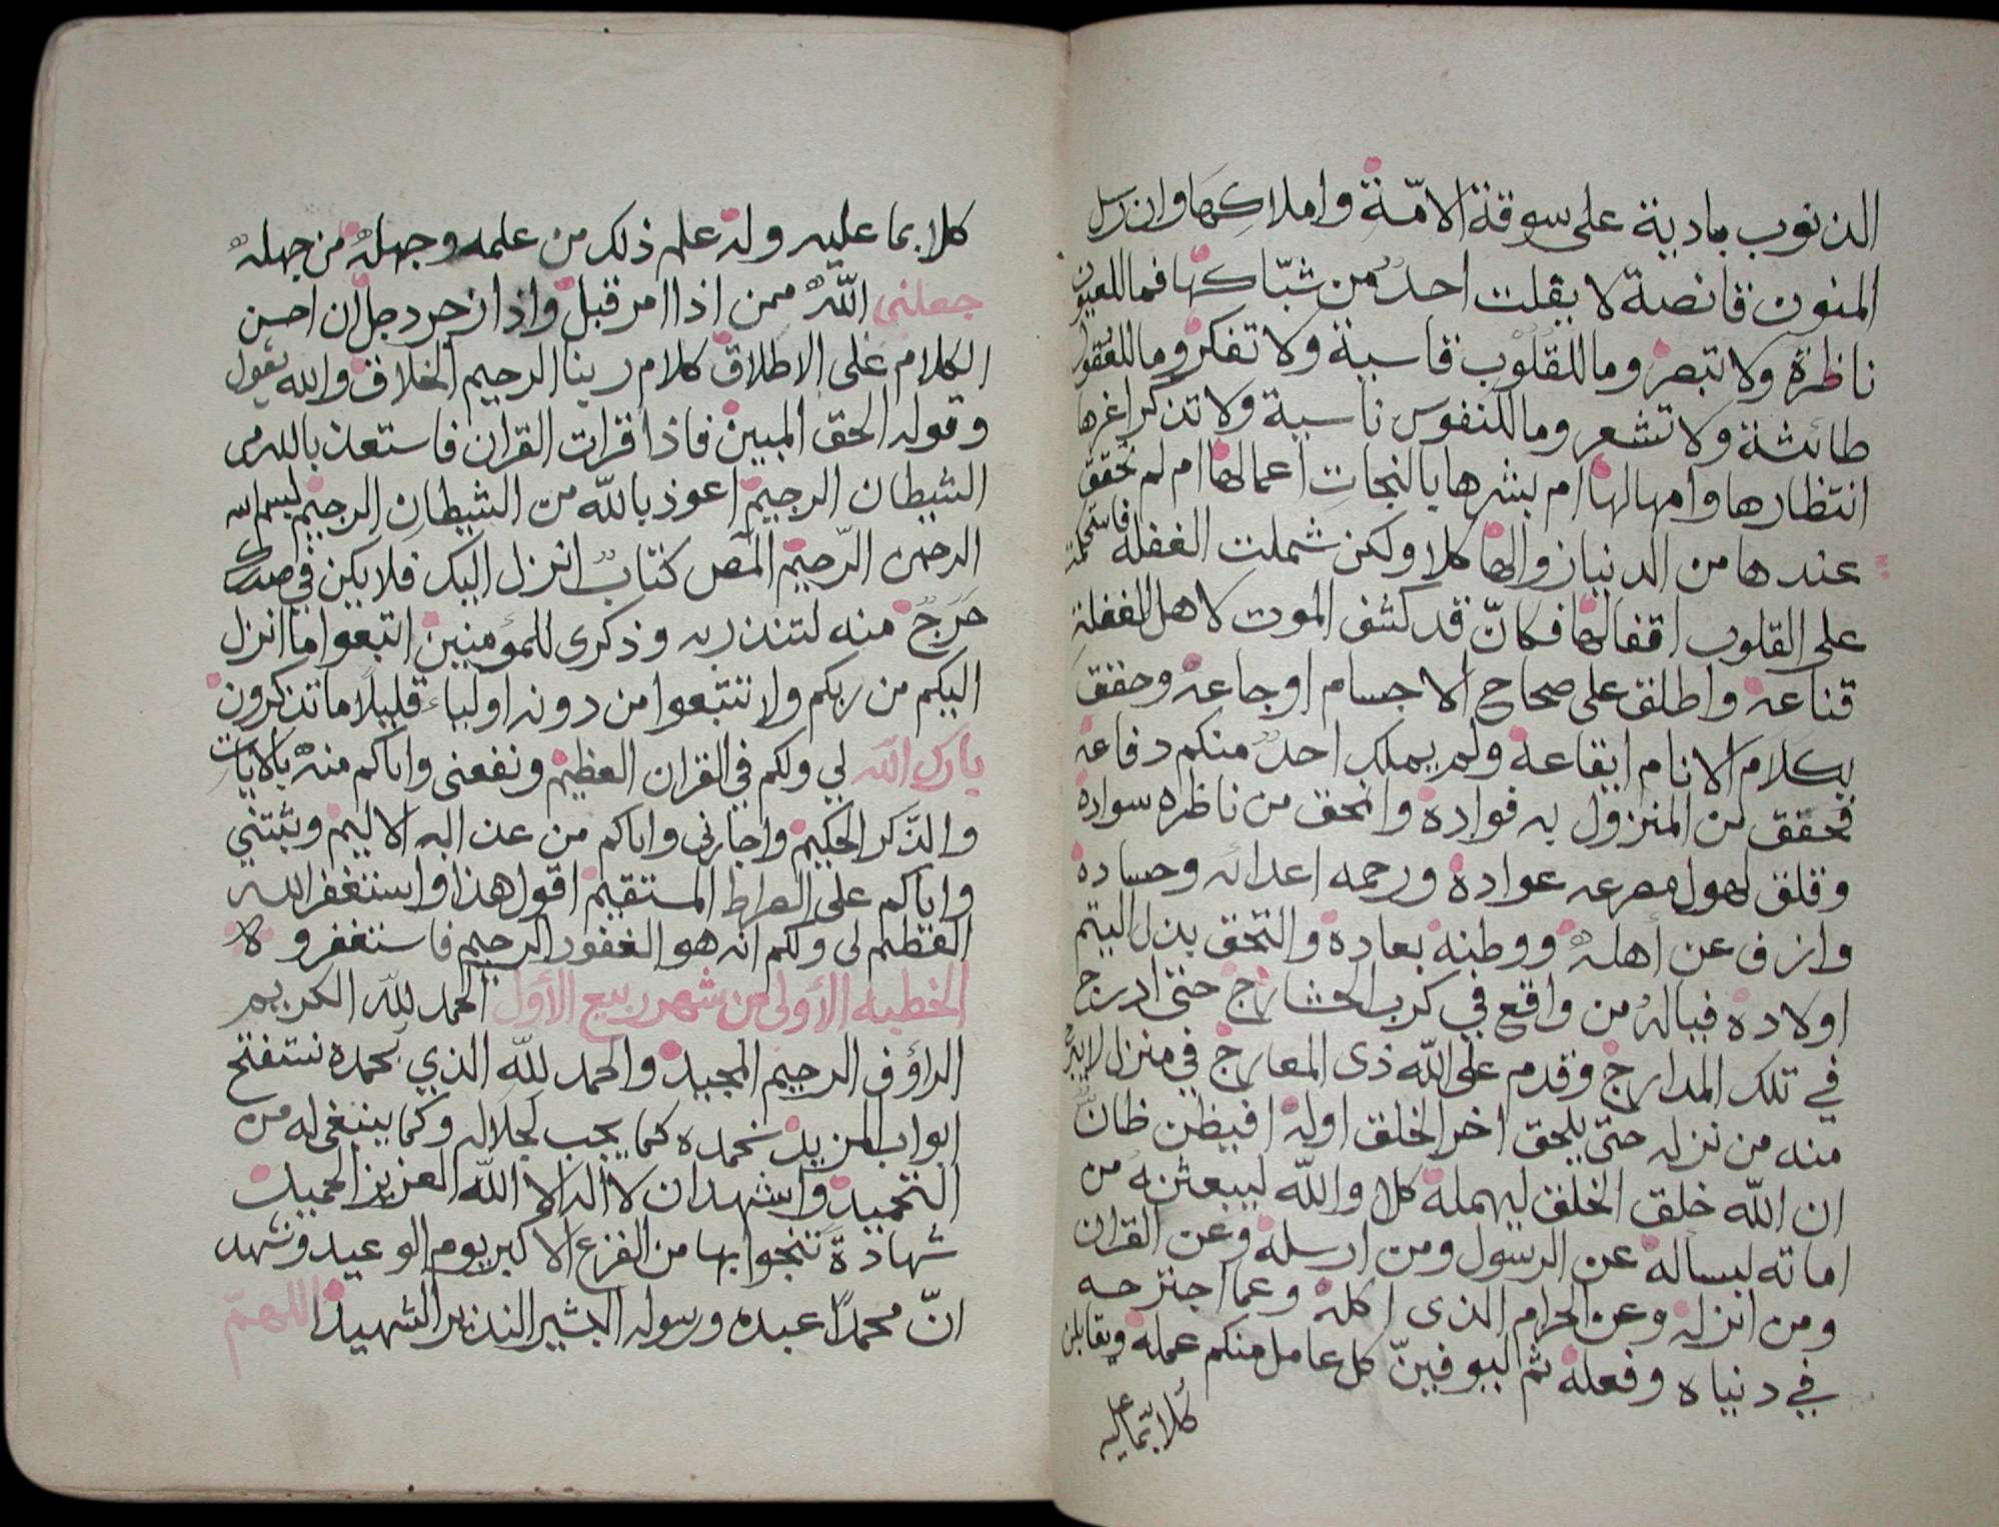 الذنوب بادية على سوقة الامّة واملاكها وان رسل
المنون قانصة لا يفلت احدٌ من شبّاكها فما للعيون
ناظرة ولا تبصر وما للقلوب قاسية ولا تفكر وما للعقول
طائشة ولا تشعر وما للنفوس ناسية ولا تذكر اغرها
انتظارها وامهالها ام بشرها بالنجات اعمالها ام لم تحقق
عندها من الدنيا زوالها كلا ولكن شملت الغفلة فاستحكمت
على القلوب اقفالها فكانّ قد كشف الموت لاهل الغفلة
قناعه واطلق على صحاح الاجسام اوجاعه وحقق
بكلام الانام ايقاعه ولم يملك احدٌ منكم دفاعه
فحقق من المنزول به فواده وانمحق من ناظره سواده
وقلق لهول مصرعه عواده ورحمه اعدائه وحساده
وازف عن أهله ووطنه بعاده والتحق بذل اليتم
اولاده فياله من واقع في كرب الحشارج حتى ادرج
في تلك المدارج وقدم على الله ذى المعارج في منزل لا يبرح
منه من نزله حتى يلحق اخر الخلق اوله افيظن ظان
ان الله خلق الخلق ليهمله كلا والله ليبعثنه من
اماته ليساله عن الرسول ومن ارسله وعن القران
ومن انزله وعن الحرام الذى اكله وعما اجترحه
في دنياه وفعله ثم ليوفينّ كل عامل منكم عمله ويقابلن
كلا بما عليه
كلا بما عليه وله علم ذلك من علمه وجهله من جهله
جعلنى اللّه ممن اذا امر قبل واذا زجر وجل ان احسن
الكلام على الاطلاق كلام ربنا الرحيم الخلاق والله يقول
وقوله الحق المبين فاذا قرات القران فاستعذ بالله من
الشيطان الرجيم اعوذ بالله من الشيطان الرجيم بسم الله
الرحمن الرّحيم المص كتابٌ انزل اليك فلا يكن في صدرك
حَرَجٌ منه لتنذر به وذكرى للمؤمنين اتبعوا ما انزل
اليكم من ربكم ولا تتبعوا من دونه اولياء قليلًا ما تذكرون
بارك الله لي ولكم في القران العظيم ونفعنى واياكم منه بالايات
والذّكر الحكيم واجارنى واياكم من عذابه الاليم وثبتني
واياكم على الصراط المستقيم اقول هذا واستغفر الله
العظيم لى ولكم انه هو الغفور الرحيم فاستغفروه
الخطبه الأولى من شهر ربيع الأول الحمد للّه الكريم
الرؤف الرحيم المجيد والحمد للّه الذي بحمده نستفتح
ابواب المزيد نحمده كما يجب لجلاله وكما ينبغى له من
التحميد واشهد ان لا اله الا اللّه العزيز الحميد
شهادةً ننجوا بها من الفزع الاكبر يوم الوعيد ونشهد
انّ محمدًا عبده ورسوله البشير النذير الشهيد اللهمّ